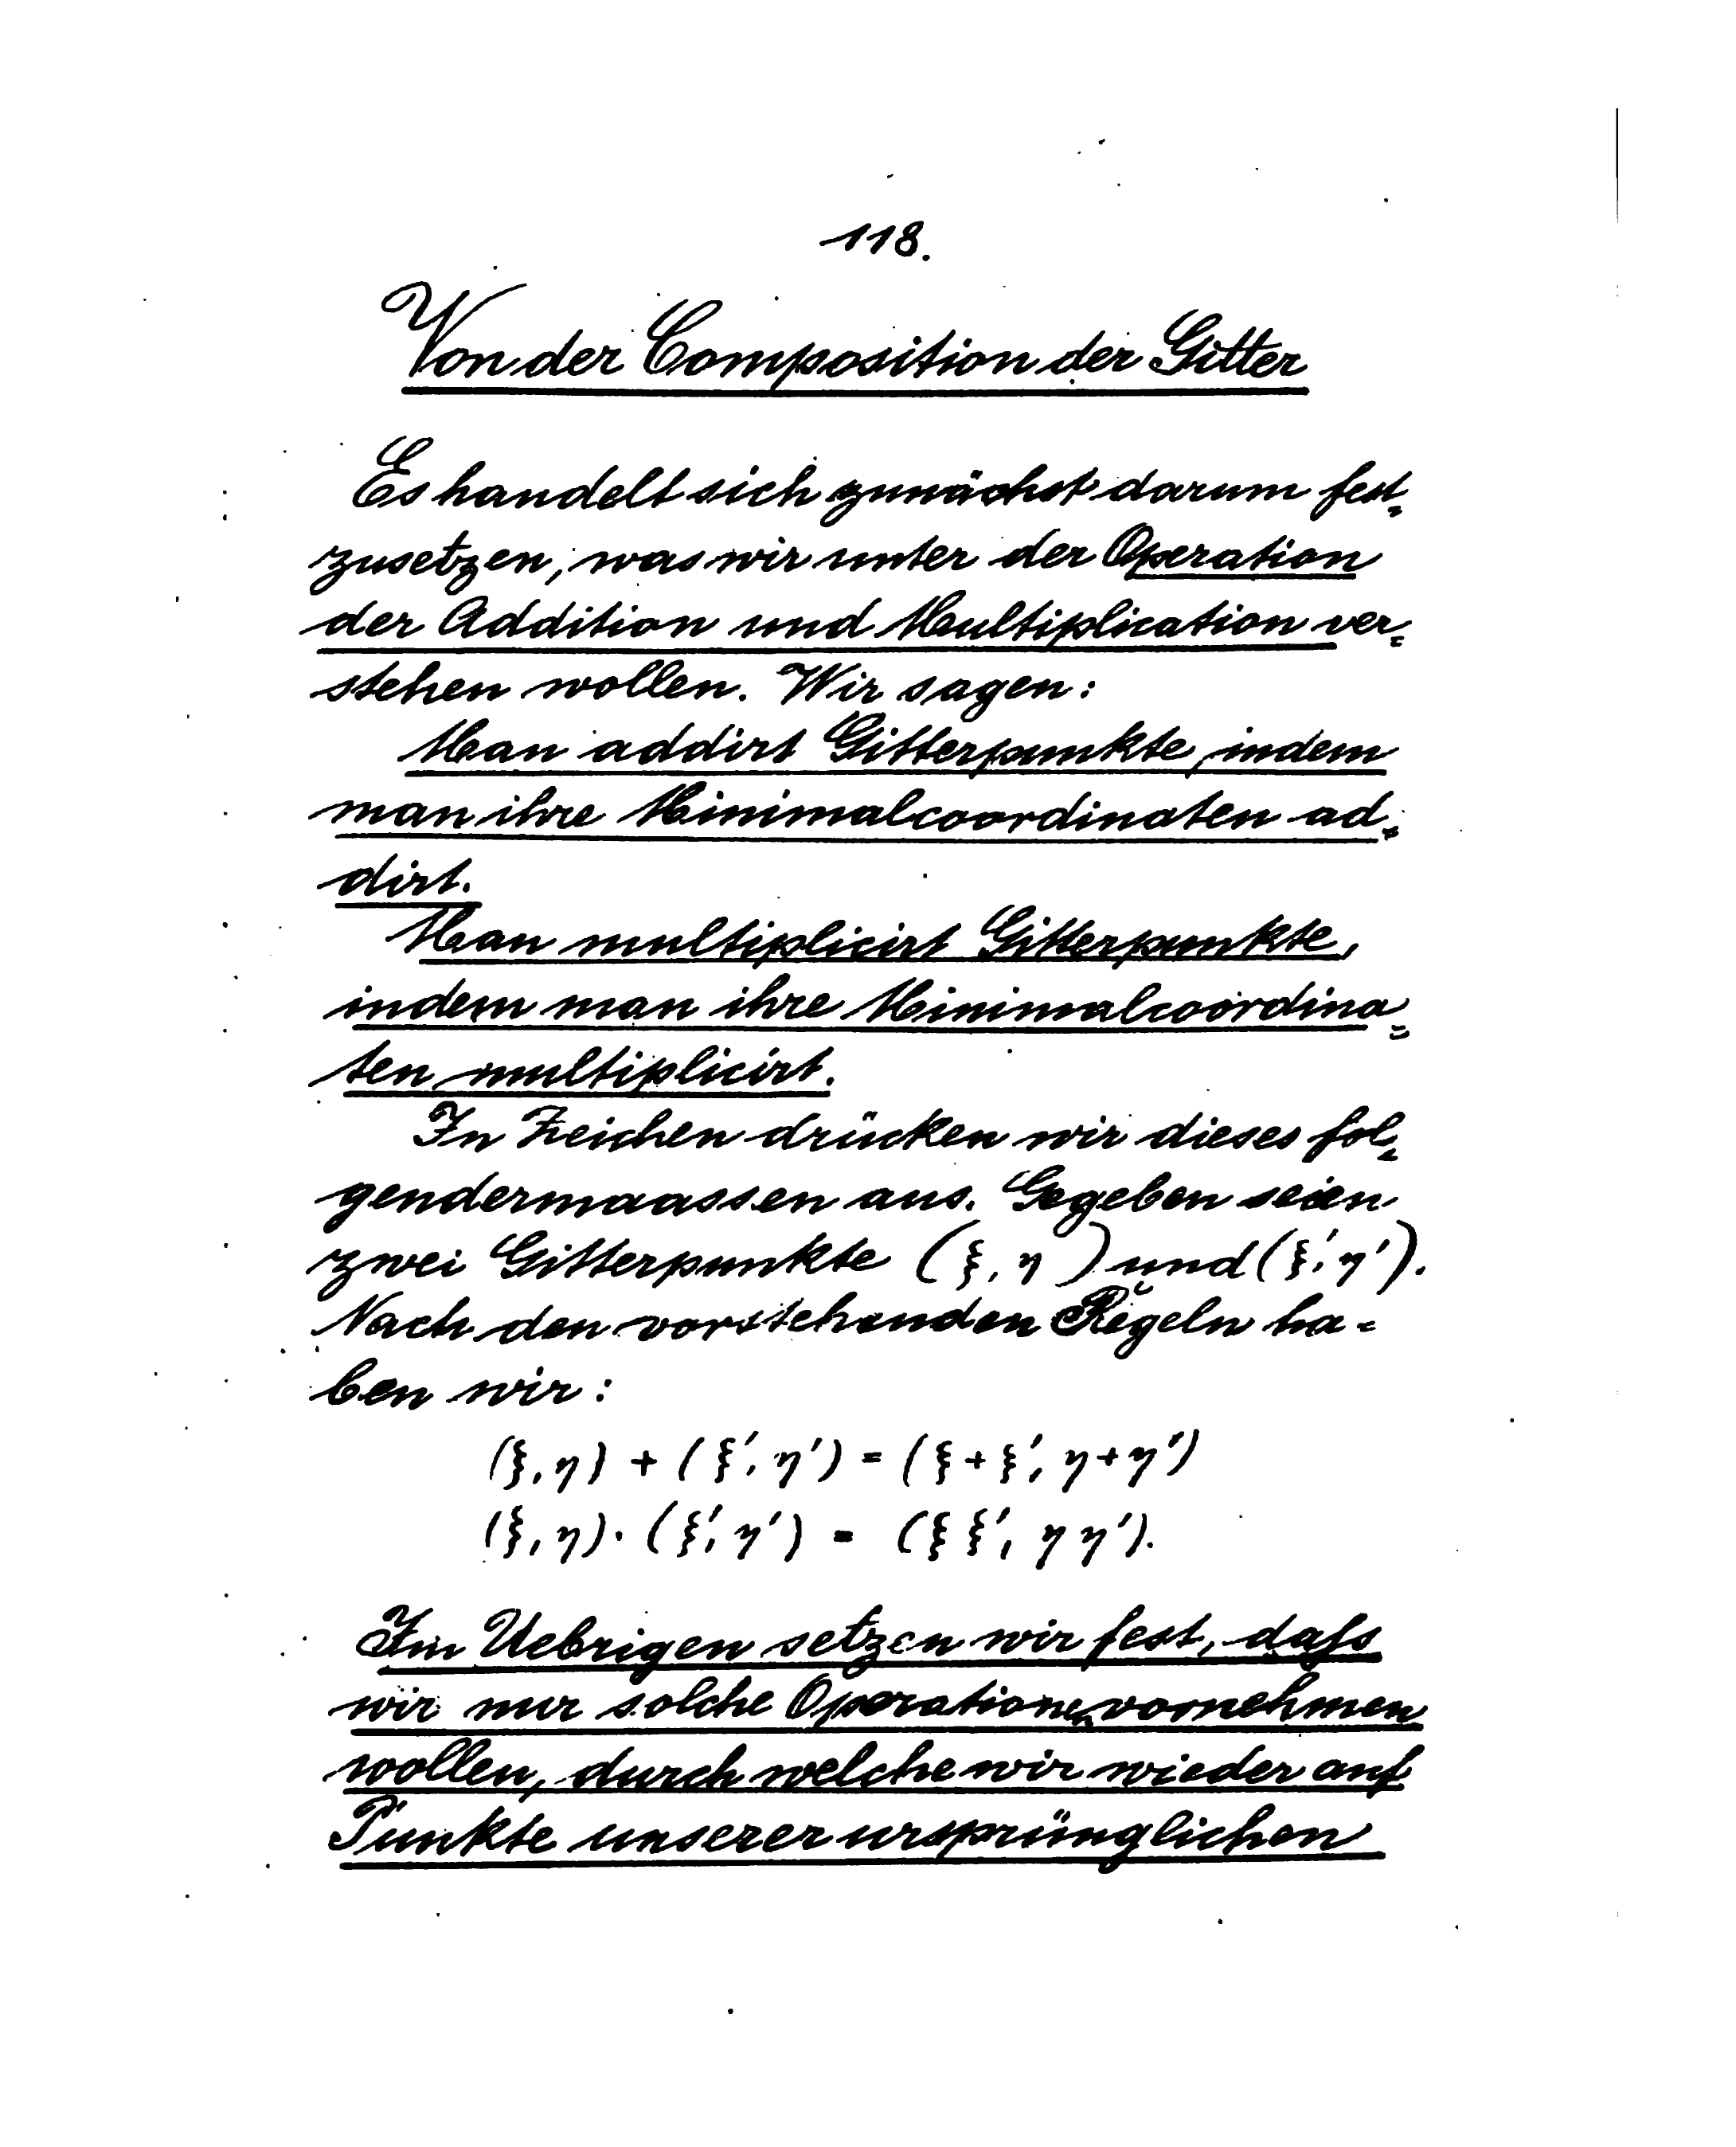 118.
Von der Composition der Gitter
Es handelt sich zunächst darum fest=
zusetzen, was wir unter der Operation
der Addition und Multiplication ver=
stehen wollen. Wir sagen:
Man addirt Gitterpunkte, indem
man ihre Minimalcoordinaten ad=
dirt.
Man multiplicirt Gitterpunkte,
indem man ihre Minimalcoordina=
ten multiplicirt.
In Zeichen drücken wir dieses fol=
gendermaassen aus. Gegeben seien
zwei Gitterpunkte (ξ, η) und (ξ', η').
Nach den vorstehenden Regeln ha=
ben wir:
(ξ, η) + (ξ', η') = (ξ + ξ', η + η')
(ξ, η) · (ξ', η') = (ξ ξ', η η').
Im Uebrigen setzen wir fest, dass
wir nur solche Operationen vornehmen
wollen, durch welche wir wieder auf
Punkte unserer ursprünglichen